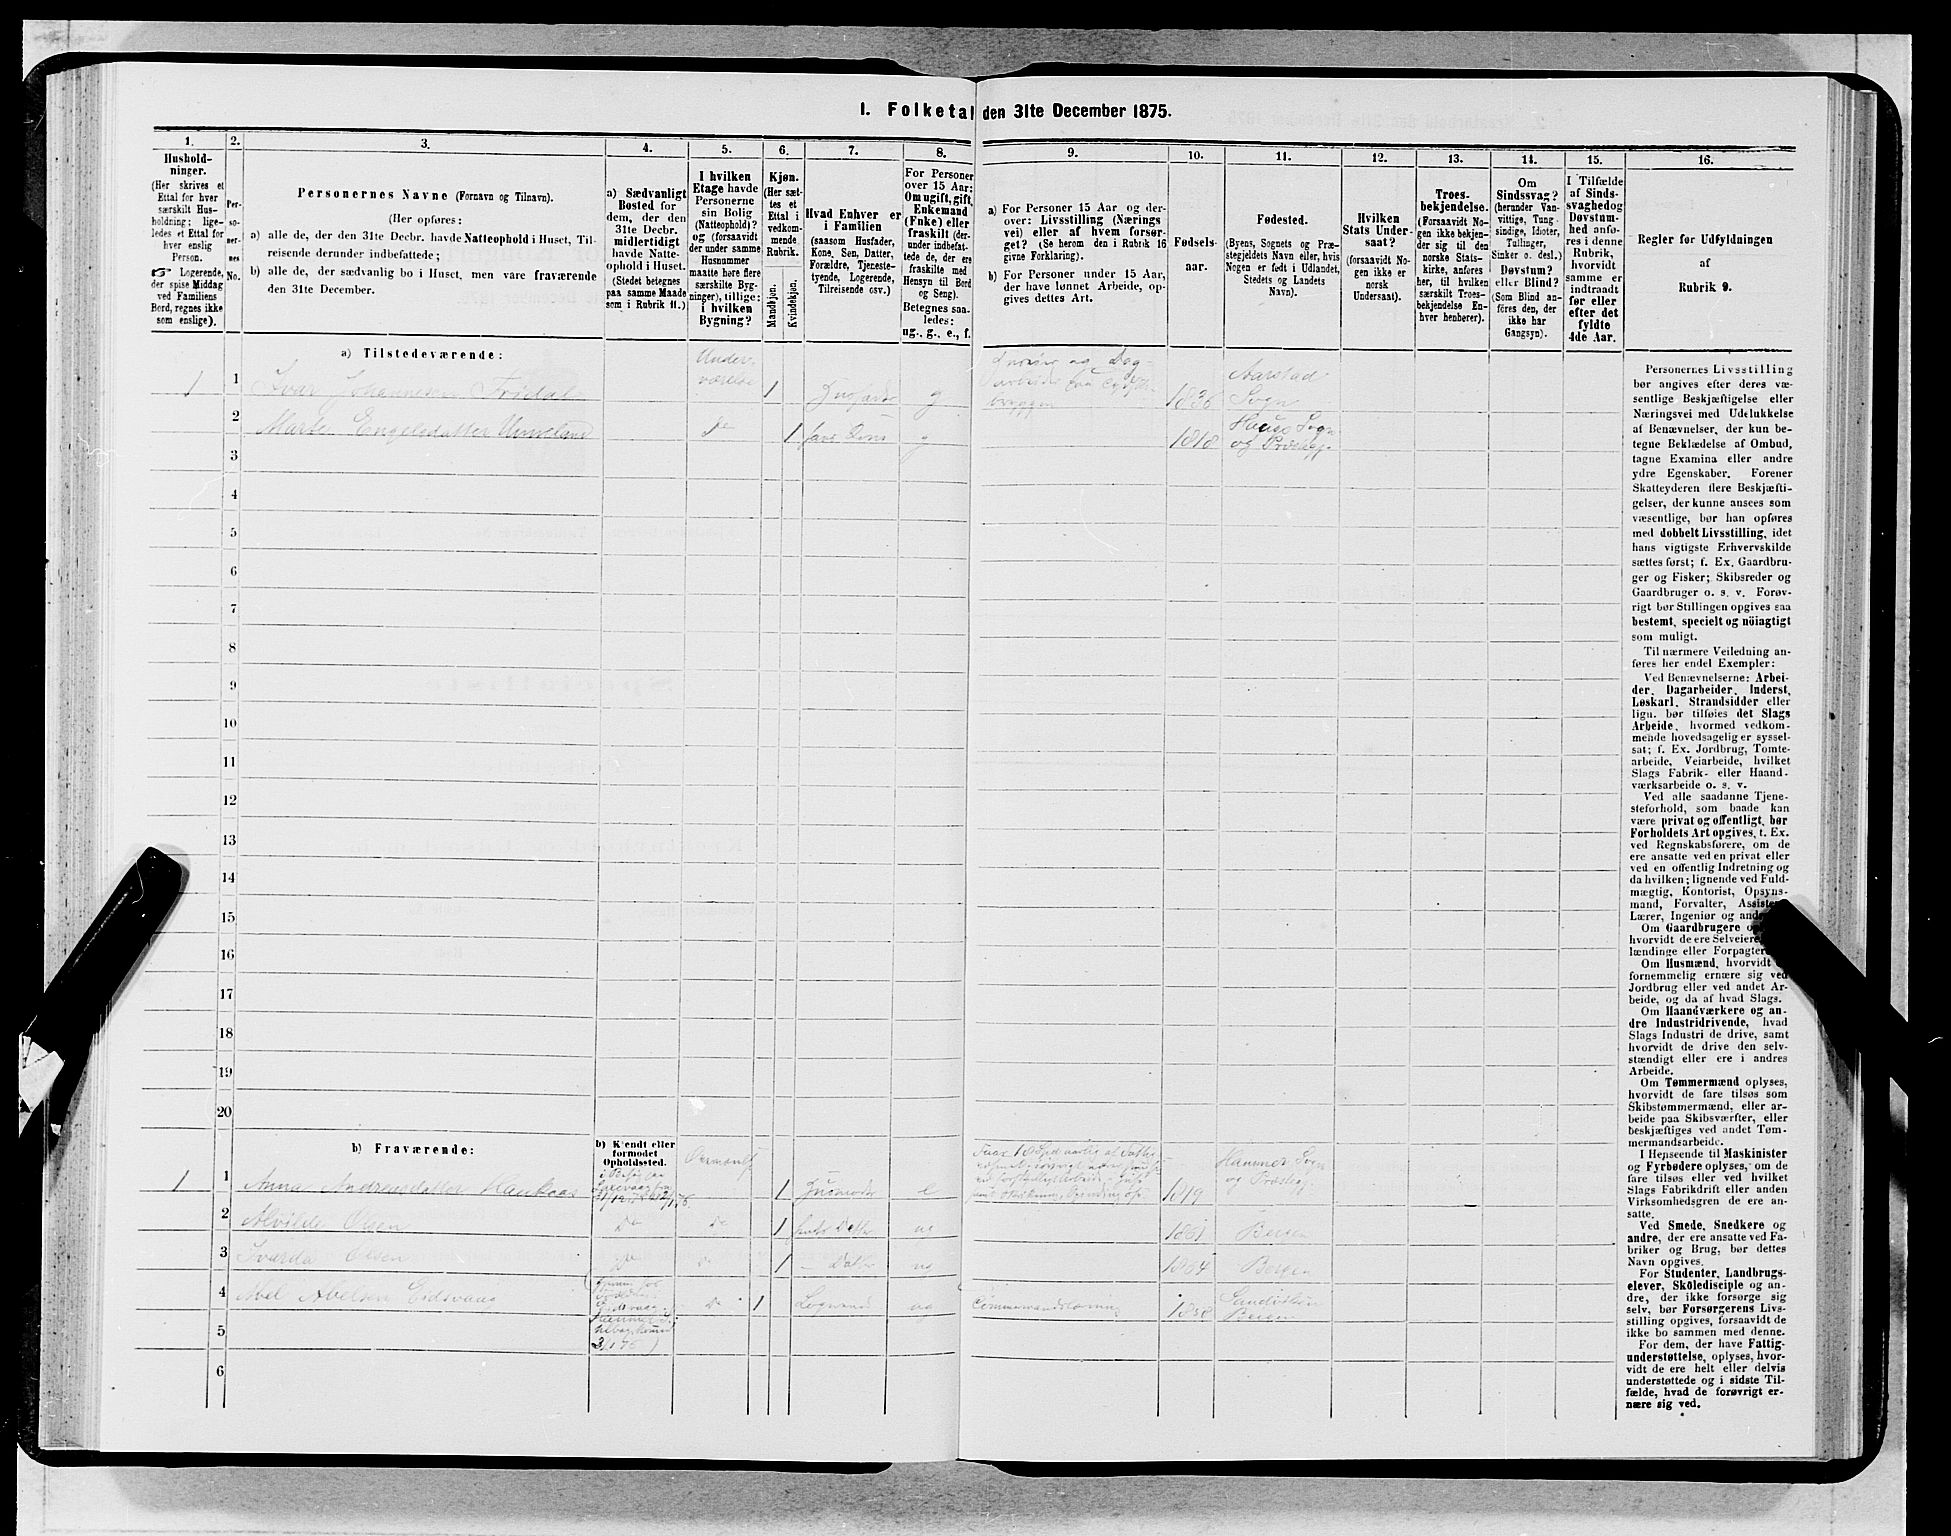 1. Folketal den 31te December 1875.
1.
Hushold-
ninger.
(Her skrives et
Ettal for hver
særskilt Hus-
holdning; lige-
ledes et Ettal for
hver enslig
Person.
☞ Logerende,
der spise Middag
ved Familiens
Bord, regnes ikke
som enslige).
2.
Per-
so-
ner-
nes
No.
3.
Personernes Navne (Fornavn og Tilnavn).
(Her opføres:
a) alle de, der den 31te Decbr. havde Natteophold i Huset, Til-
reisende derunder indbefattede;
b) alle de, der sædvanlig bo i Huset, men vare fraværende
den 31te December.
4.
a) Sædvanligt
Bosted for
dem, der den
31te Decbr.
midlertidigt
havde Natte-
ophold i Huset.
(Stedet betegnes
paa samme Maade
som i Rubrik 11.)
5.
I hvilken
Etage havde
Personerne
sin Bolig
(Natteophold)?
og (forsaavidt
der under samme
Husnummer
maatte høre flere
særskilte Byg-
ninger), tillige:
i hvilken
Bygning?
6.
Kjøn.
(Her sæt-
tes et
Ettal i
vedkom-
mende
Rubrik.
Mandkjøn.
Kvindekjøn.
7.
Hvad Enhver er
i Familien
(saasom Husfader,
Kone, Søn, Datter,
Forældre, Tjeneste-
tyende, Logerende,
Tilreisende osv.)
8.
For Personer
over 15 Aar:
Om ugift, gift,
Enkemand
(Enke) eller
fraskilt (der-
under indbefat-
tede de, der ere
fraskilte med
Hensyn til Bord
og Seng).
Betegnes saa-
ledes:
ug., g., e., f.
9.
a) For Personer 15 Aar og der-
over: Livsstilling (Nærings
vei) eller af hvem forsør-
get? (Se herom den i Rubrik 16
givne Forklaring).
b) For Personer under 15 Aar,
der have lønnet Arbeide, op-
gives dettes Art.
10.
Fødsels-
aar.
11.
Fødested.
(Byens, Sognets og Præ-
stegjeldets Navn eller, hvis
Nogen er født i Udlandet,
Stedets og Landets
Navn).
12.
Hvilken
Stats Under-
saat?
(forsaavidt No-
gen ikke er
norsk
Undersaat).
13.
Troes-
bekjendelse.
(Forsaavidt No-
gen ikke bekjen-
der sig til den
norske Stats-
kirke, anføres
her, til hvilken
særskilt Troes-
bekjendelse En-
hver henhører).
14.
Om
Sindssvag?
(herunder Van-
vittige, Tung-
sindige, Idioter,
Tullinger,
Sinker o. desl.)
Døvstum?
eller Blind?
(Som Blind an-
føres den, der
ikke har
Gangsyn).
15.
I Tilfælde
af Sinds-
svaghed og
Døvstum-
hed anfø-
res i denne
Rubrik,
hvorvidt
samme er
indtraadt
før eller
efter det
fyldte
4de Aar.
16.
Regler før Udfyldningen
af
Rubrik 9.
a) Tilstedeværende:
1 1 Ivar Johannesen Under- værelse 1 Husfader g 1836 Aarstad Sogn
2 Marte Engelsdatter do 1 hans Kone g 1818 Hause Sogn og Præstegj.
3
4
5
6
7
8
9
10
11
12
13
14
15
16
17
18
19
20
b) Fraværende:
b) Kjendt eller
formodet
Opholdssted.
1 1 Anna Andreasdatter Haukaas 1 Husmoder e 1819 Hammer Sogn og Præstegj.
2 Alvilde Olsen do do 1 hendes Datter ug 1861 Bergen
3 Olsen do do 1 - Datter ug 1864 Bergen
4 Abel Abelsen Eidsvaag do 1 Logerende ug Tømmermandslærling 1858 Bergen
5
6
Personernes Livsstilling
bør angives efter deres væ-
sentlige Beskjæftigelse eller
Næringsvei med Udelukkelse
af Benævnelser, der kun be-
tegne Beklædelse af Ombud,
tagne Examina eller andre
ydre Egenskaber. Forener
Skatteyderen flere Beskjæfti-
gelser, der kunne ansees som
væsentlige, bør han opføres
med dobbelt Livsstilling, idet
hans vigtigste Erhvervskilde
sættes først; f. Ex. Gaardbru-
ger og Fisker; Skibsreder og
Gaardbruger o. s. v. Forøv-
rigt bør Stillingen opgives saa
bestemt, specielt og nöiagtigt
som muligt.
Til nærmere Veiledning an-
føres her endel Exempler:
Ved Benævnelserne: Arbei-
der, Dagarbeider, Inderst,
Løskarl, Strandsidder eller
lign. bør tilføies det Slags
Arbeide, hvormed vedkom-
mende hovedsagelig er syssel-
sat; f. Ex. Jordbrug, Tomte-
arbeide, Veiarbeide, hvilket
Slags Fabrik- eller Haand-
værksarbeide o. s. v.
Ved alle saadanne Tjene-
steforhold, som baade kan
være privat og offentligt, bør
Forholdets Art opgives, t. Ex.
ved Regnskabsførere, om de
ere ansatte ved en privat eller
ved en offentlig Indretning og
da hvilken; lignende ved Fuld-
mægtig, Kontorist, Opsyns-
mand, Forvalter,
Lærer, Ingeniør og
Om Gaardbrugere
hvorvidt de ere
lændinge eller
Om Husmænd, hvorvidt
fornemmelig ernære sig ved
Jordbrug eller ved andet Ar-
beide, og da af hvad Slags.
Om Haandværkere og an-
dre Industridrivende, hvad
Slags Industri de drive, samt
hvorvidt de drive den selv-
stændigt eller ere i andres
Arbeide.
Om Tømmermænd oplyses,
hvorvidt de fare tilsøs som
Skibstømmermænd, eller ar-
beide paa Skibsværfter, eller
beskjæftiges ved andet Tøm-
mermandsarbeide.
I Hepseende til Maskinister
og Fyrbødere oplyses, om de
fare tilsøs eller ved hvilket
Slags Fabrikdrift eller anden
Virksomhedsgren de ere an-
satte.
Ved Smede, Snedkere og
andre, der ere ansatte ved Fa-
briker og Brug, bør dettes
Navn opgives.
For Studenter, Landbrugs-
elever, Skoledisciple og an-
dre, der ikke forsørge sig
selv, bør Forsørgerens Livs-
stilling opgives, forsaavidt de
ikke bo sammen med denne.
For dem, der have Fattig-
understøttelse, oplyses, hvor-
vidt de ere helt eller delvis
understøttede og i sidste Til-
fælde, hvad de forøvrigt er-
nære sig ved.